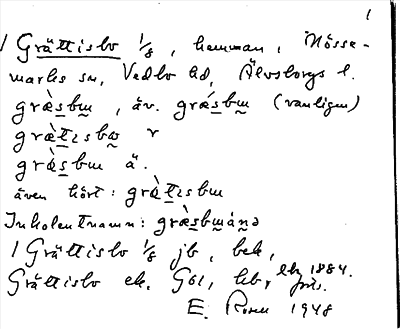 1
1 Grättisbo 1/8, hemman, Mosse-
marks sn, Vedbo hd, Älvsborgs l.
græ̀sbɯ, äv. grǽsbɯ (vanligen)
græ̀tisbɯ r
græ̀sbɯ ä.
även hört: græ̀tisbɯ
Inbolentnamn: græ̀sbɯánə
1 Grättisbo 1/8 jb, bek,
Grättisbo ek. GÖ1, hb, lkz 1884.
E. Rosen 1948